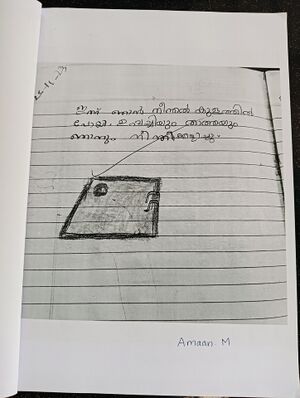 22-11-23
ഇന്ന് ഞാൻ നീന്തൽ കുളത്തിൽ
പോയി. ഉപ്പച്ചിയും താത്തയും
ഞാനും നീന്തികളിച്ചു.
Amaan. M